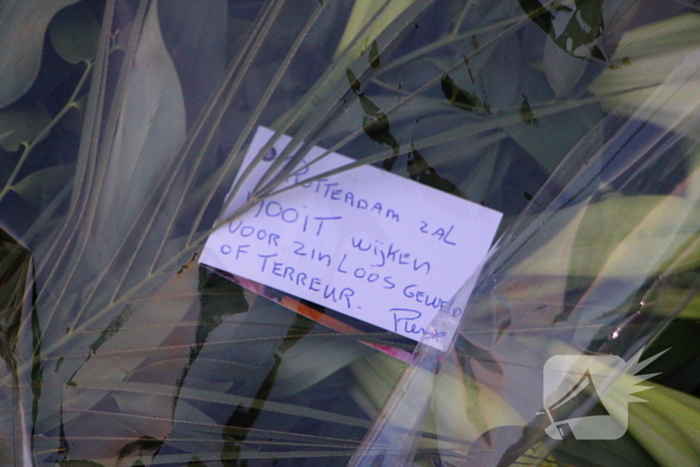 ROTTERDAM ZAL
NOOIT wijken
VOOR ZINLOOS GEWELD
OF TERREUR.